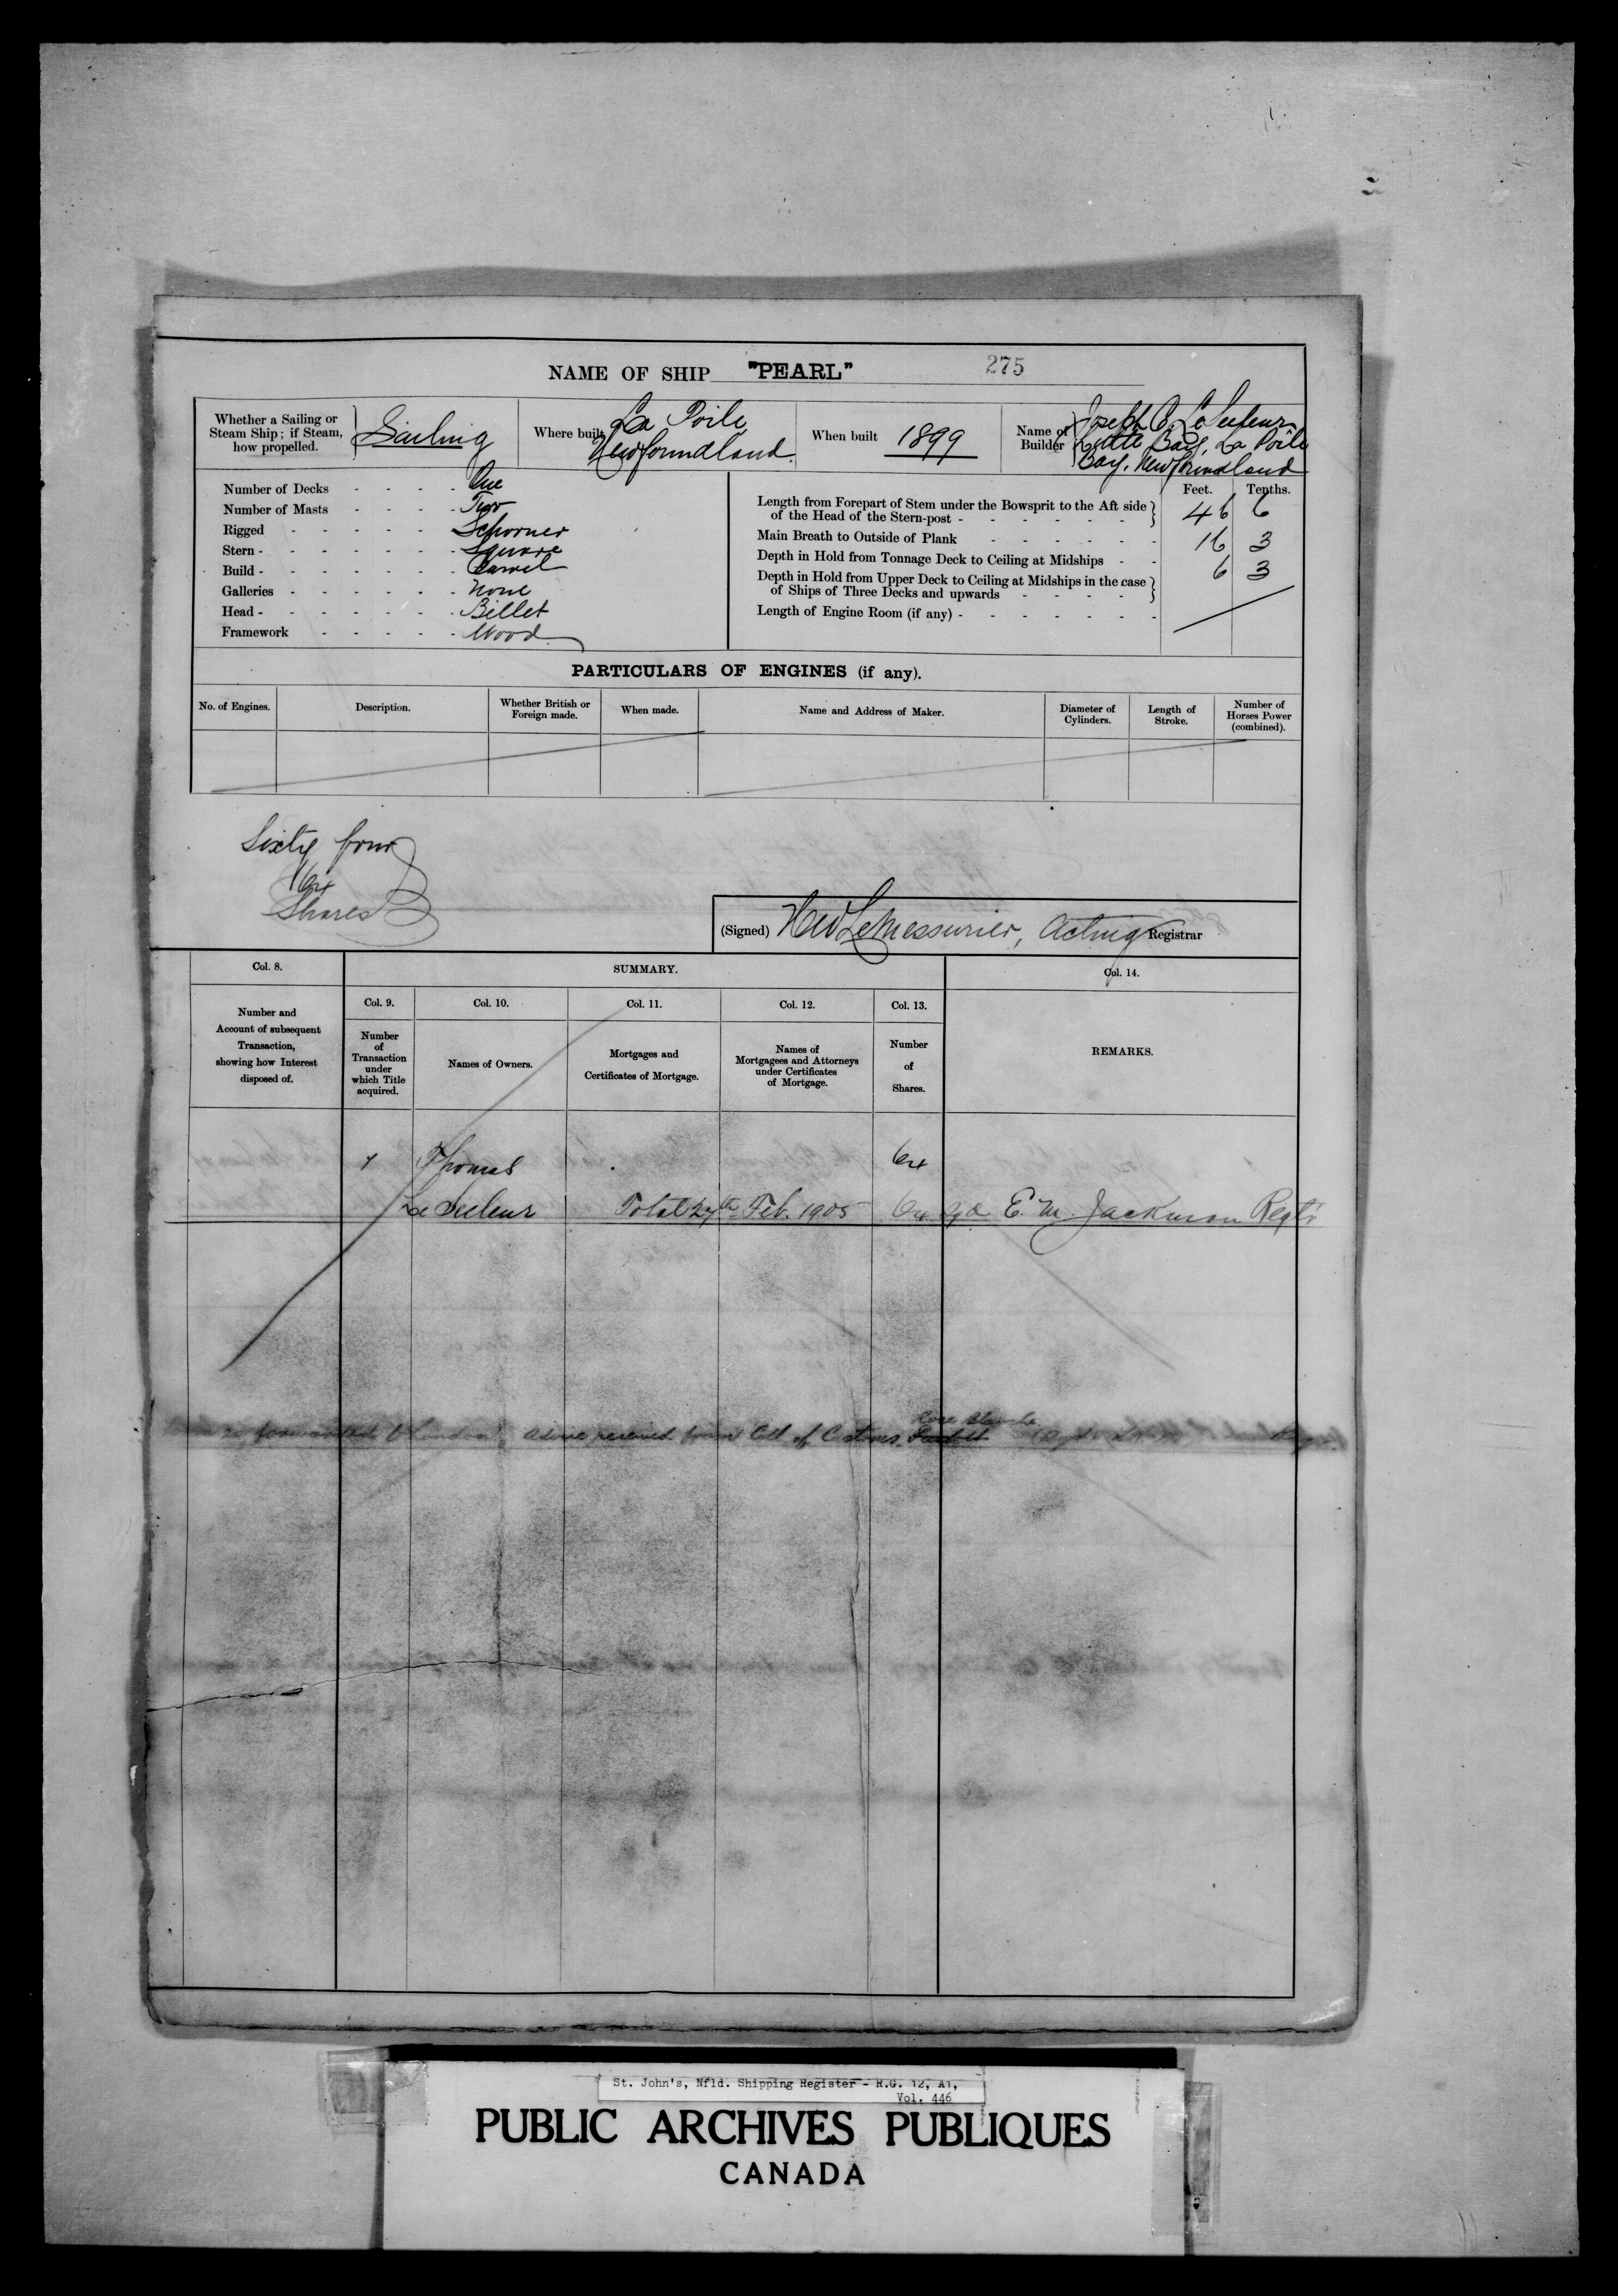 NAME OF SHIP "PEARL" 275
Whether a Sailing or Steam Ship; if Steam, how propelled. Sailing
Where built La Poile Newfoundland
When built 1899
Name of Builder Joseph Le Seeleur Little Bay, La Poile Bay, Newfoundland
Number of Decks - - - - One
Number of Masts - - - - Two
Rigged - - - - - Schooner
Stern - - - - - - Square
Build - - - - - - Carvel
Galleries - - - - - - None
Head - - - - - - Billet
Framework - - - - - Wood
Feet. Tenths.
Length from Forepart of Stem under the Bowsprit to the Aft side of the Head of the Stern-post - - - - - - 46 6
Main Breath to Outside of Plank - - - - - - 16 3
Depth in Hold from Tonnage Deck to Ceiling at Midships - - 6 3
Depth in Hold from Upper Deck to Ceiling at Midships in the case of Ships of Three Decks and upwards - - - -
Length of Engine Room (if any) - - - - - - -
PARTICULARS OF ENGINES (if any).
No. of Engines.
Description.
Whether British or Foreign made.
When made.
Name and Address of Maker.
Diameter of Cylinders.
Length of Stroke.
Number of Horses Power (combined).
Sixty four
64
Shares
(Signed) H W LeMessurier, Acting Registrar
Col. 8.
SUMMARY.
Col. 14.
Col. 9.
Col. 10.
Col. 11.
Col. 12.
Col. 13.
Number and Account of subsequent Transaction, showing how Interest disposed of.
Number of Transaction under which Title acquired.
Names of Owners.
Mortgages and Certificates of Mortgage.
Names of Mortgagees and Attorneys under Certificates of Mortgage.
Number of Shares.
REMARKS.
1 Thomas 64
Le Seeleur Total 27th Feb. 1905 64 Sgd E. M. Jackman Regtr
forwarded to London. Advice received from Coll of Customs Rose Blanche
St. John's, Nfld. Shipping Register - R.G. 12, A1,
Vol. 446
PUBLIC ARCHIVES PUBLIQUES
CANADA